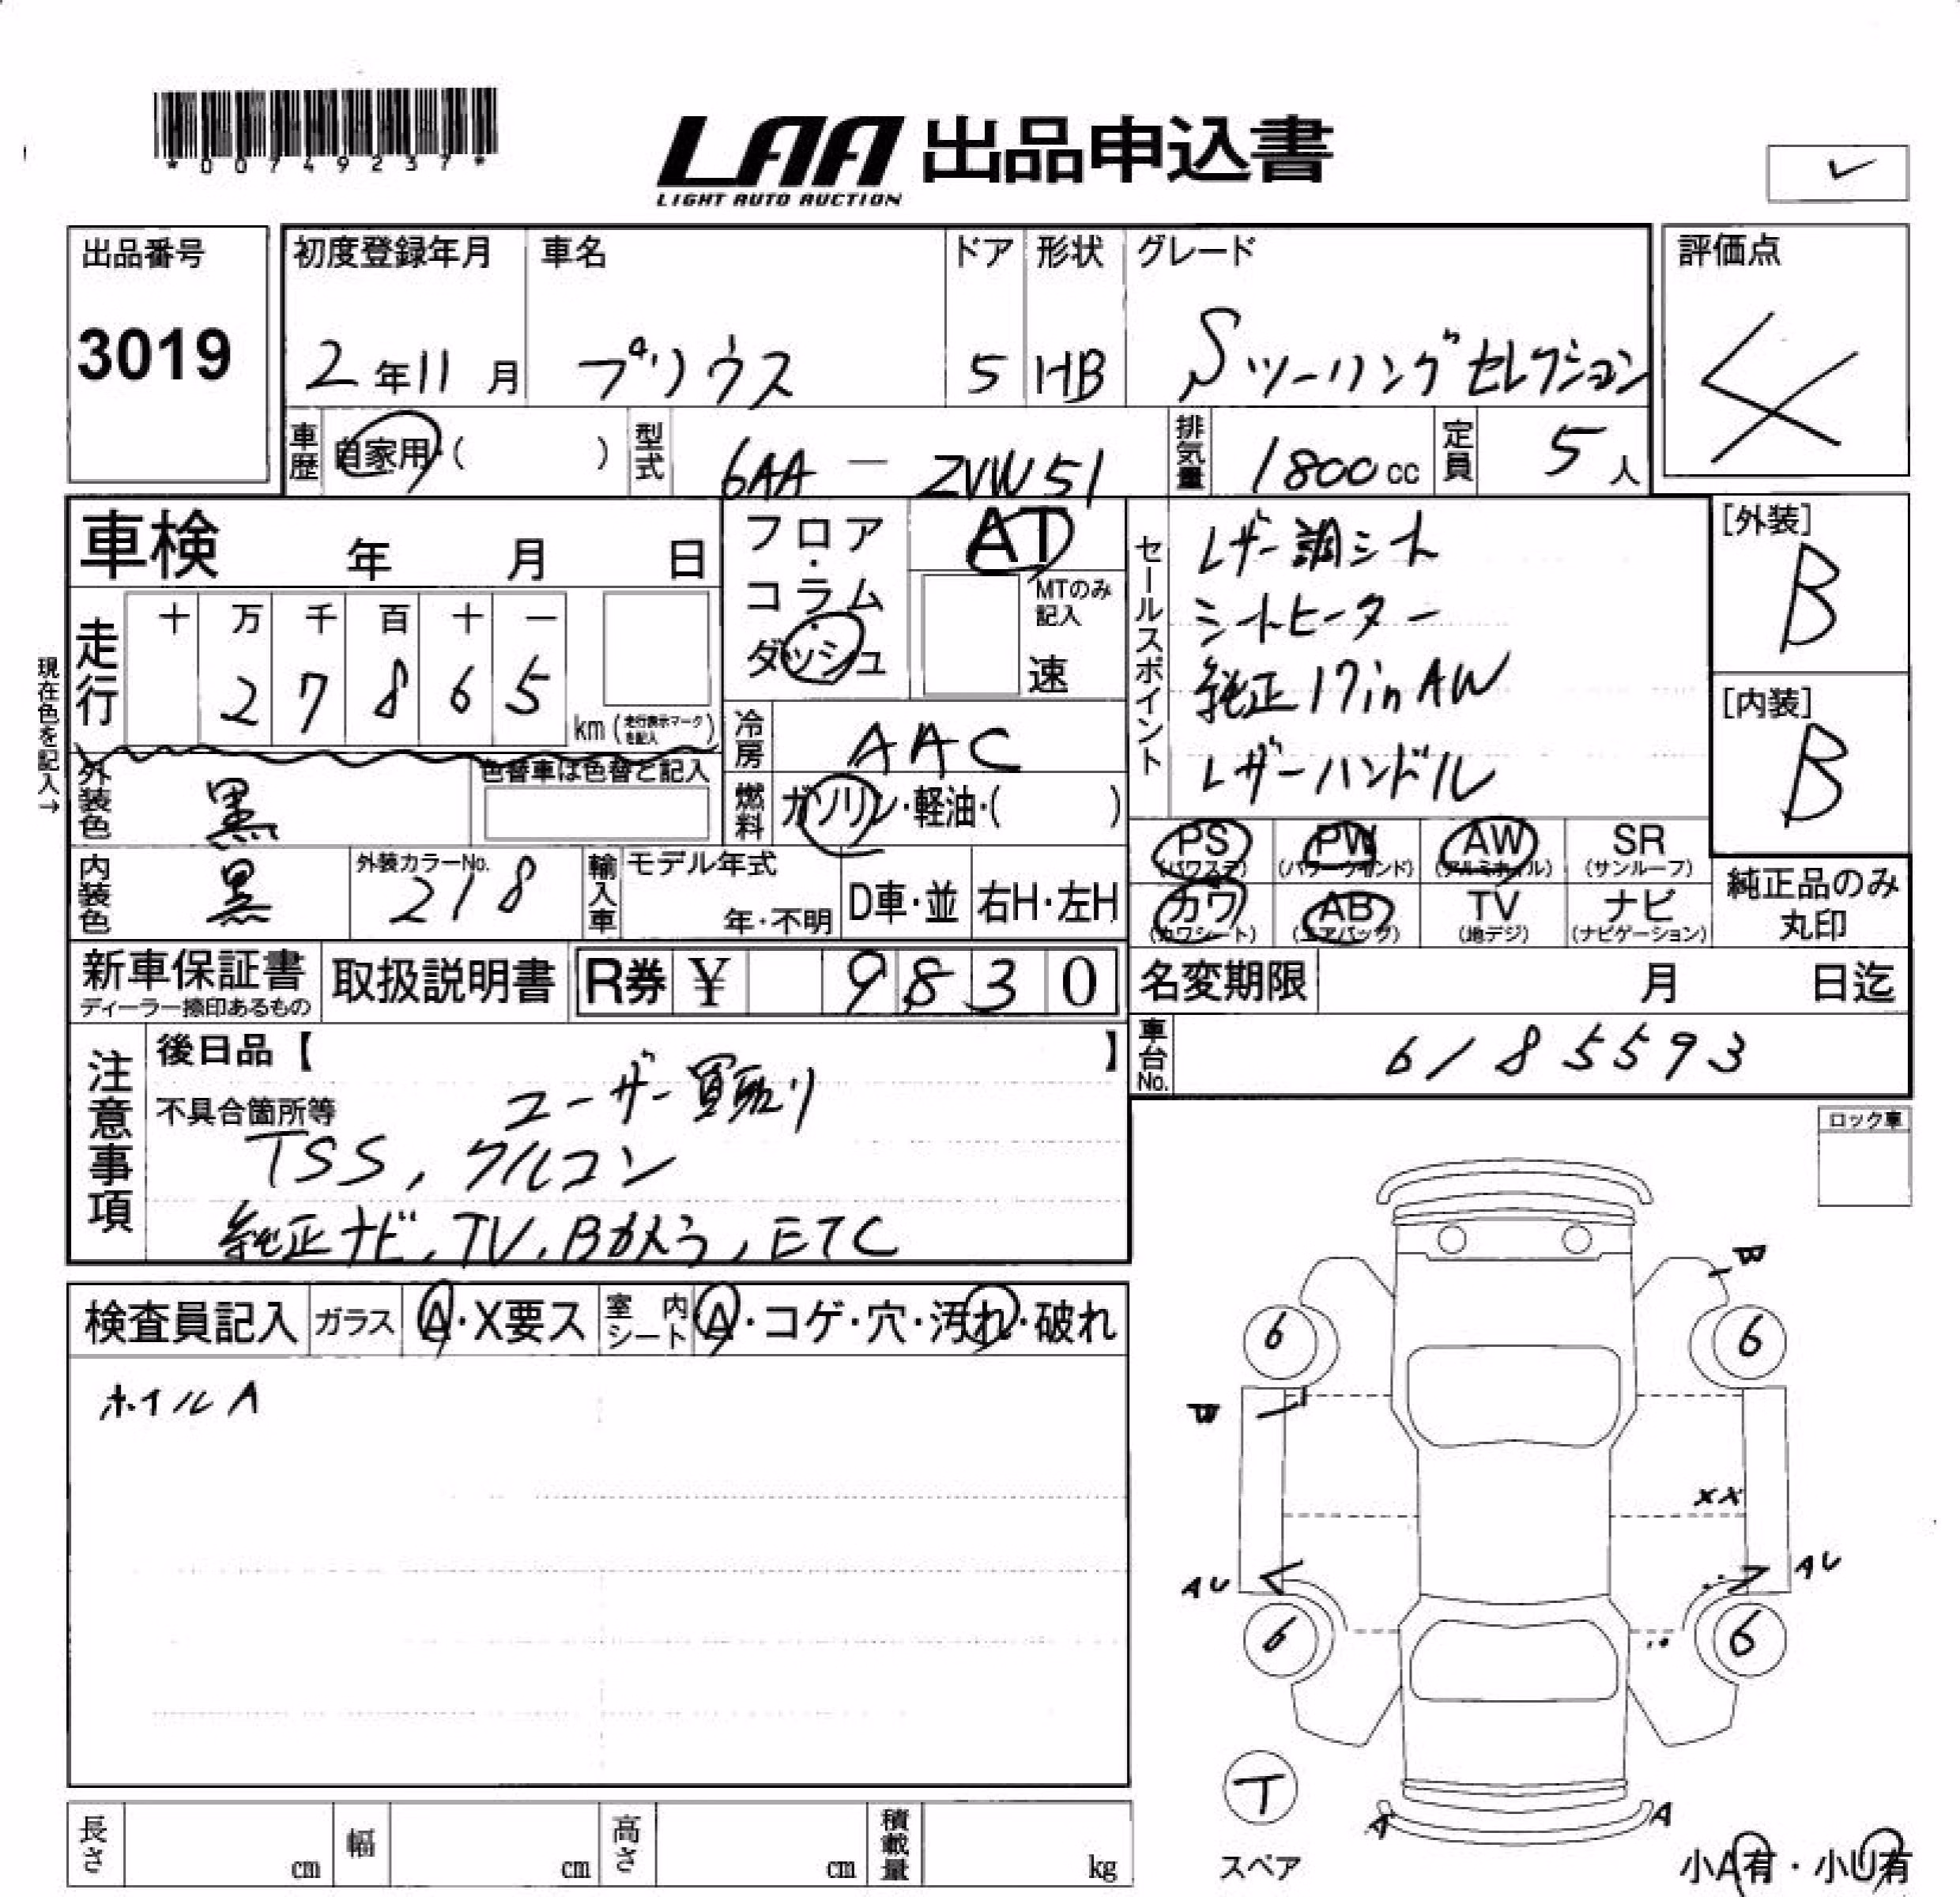 *00749237*
LAA 出品申込書
LIGHT AUTO AUCTION
✓
出品番号
3019
初度登録年月 車名 ドア 形状 グレード
2年11月 プリウス 5 HB Sツーリングセレクション
評価点
4
車歴 自家用・( ) 型式 6AA - ZVW51 排気量 1800cc 定員 5人
車検 年 月 日
フロア・コラム・ダッシュ
AT
MTのみ記入
速
セールスポイント
レザー調シート
シートヒーター
純正17inAW
レザーハンドル
[外装]
B
[内装]
B
現在色を記入→
走行 十 万 千 百 十 一
2 7 8 6 5 km (走行表示マークを記入)
冷房 AAC
外装色 黒 色替車は色替と記入
燃料 ガソリン・軽油・( )
内装色 黒 外装カラーNo. 218 輸入車 モデル年式 年・不明 D車・並 右H・左H
PS (パワステ) PW (パワーウインド) AW (アルミホイル) SR (サンルーフ)
カワ (カワシート) AB (エアバッグ) TV (地デジ) ナビ (ナビゲーション)
純正品のみ丸印
新車保証書 ディーラー捺印あるもの 取扱説明書 R券 ¥ 9830
名変期限 月 日迄
車台No. 6185593
注意事項
後日品【 】
不具合箇所等 ユーザー買取り
TSS, クルコン
純正ナビ, TV, Bカメラ, ETC
ロック車
検査員記入 ガラス A・X要ス 室内シート A・コゲ・穴・汚れ・破れ
ホイルA
W
6 6
W
XX
AU AU
6 6
T
スペア
A A
小A有・小U有
長さ cm 幅 cm 高さ cm 積載量 kg